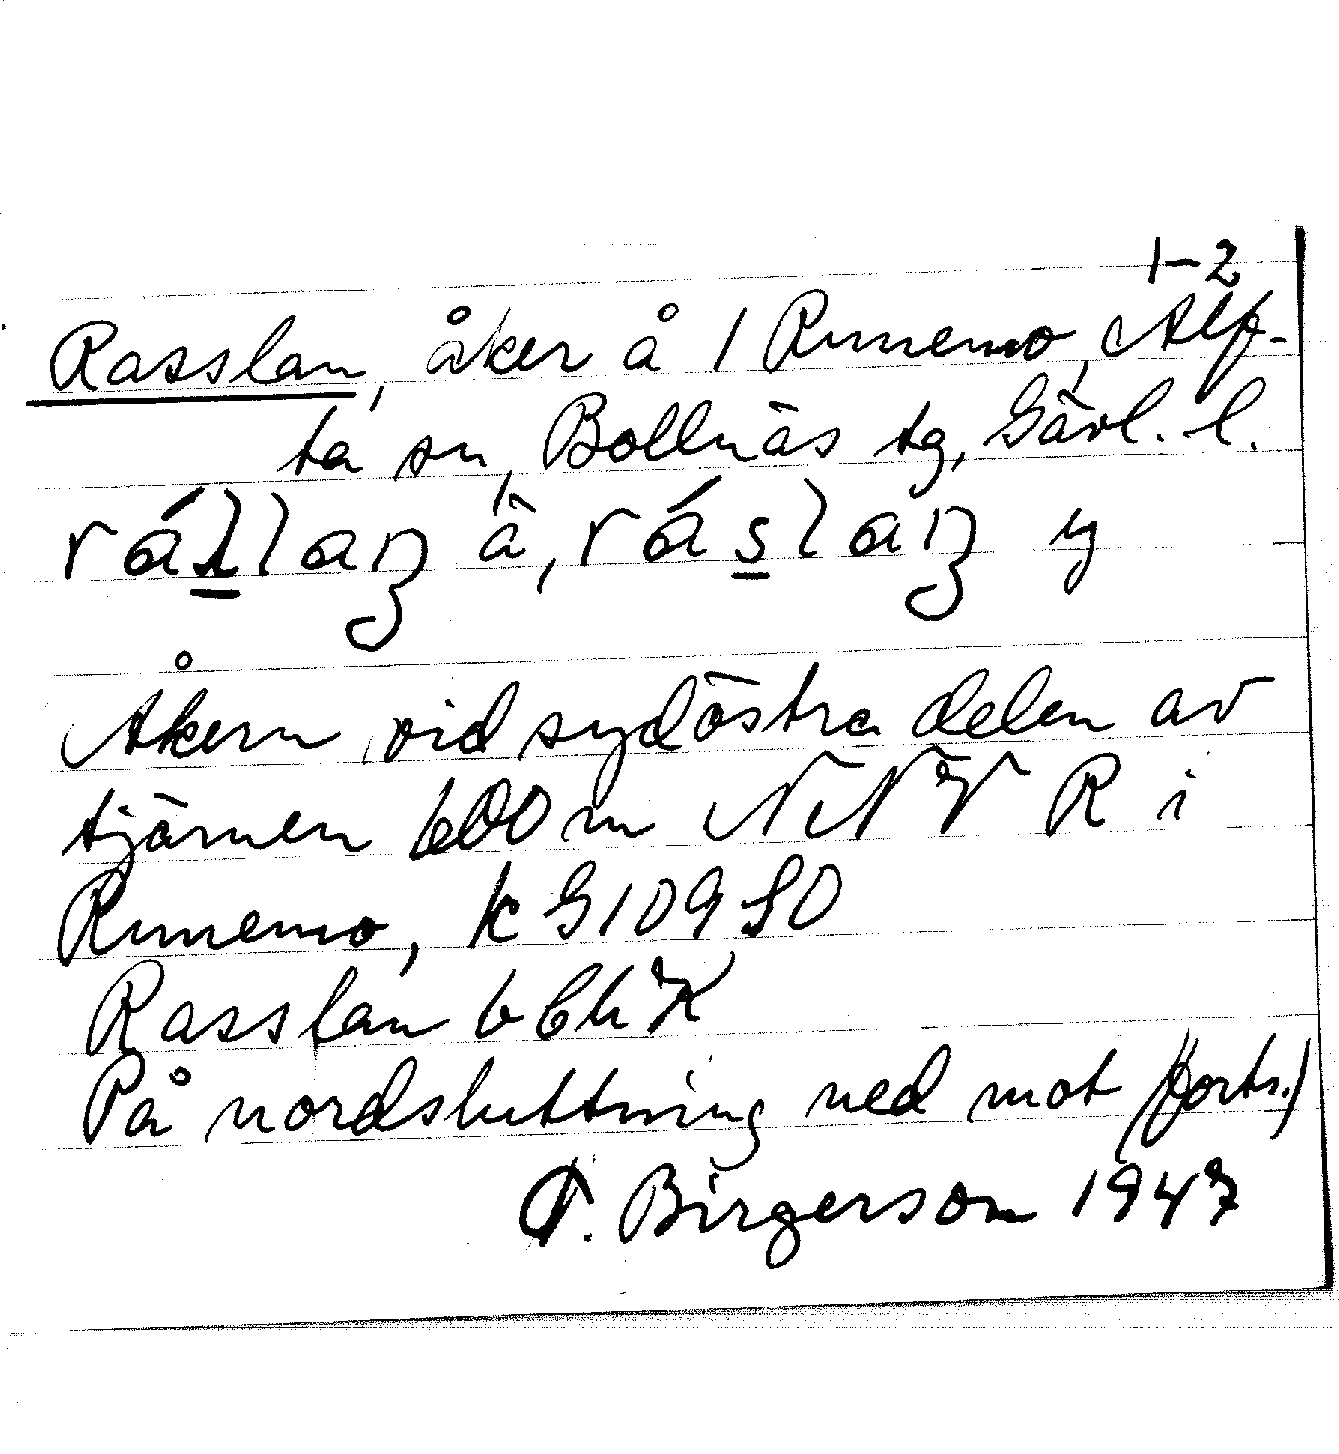 1-2
Rasslan, åker å 1 Runemo, Alf-
ta sn, Bollnäs tg, Gävl. l.
ä, y
Åkern vid sydöstra delen av
tjärnen 600 m NNV R i
Runemo, k G109SO
Rasslan
På nordsluttning ned mot (forts.)
Birgerson 1947